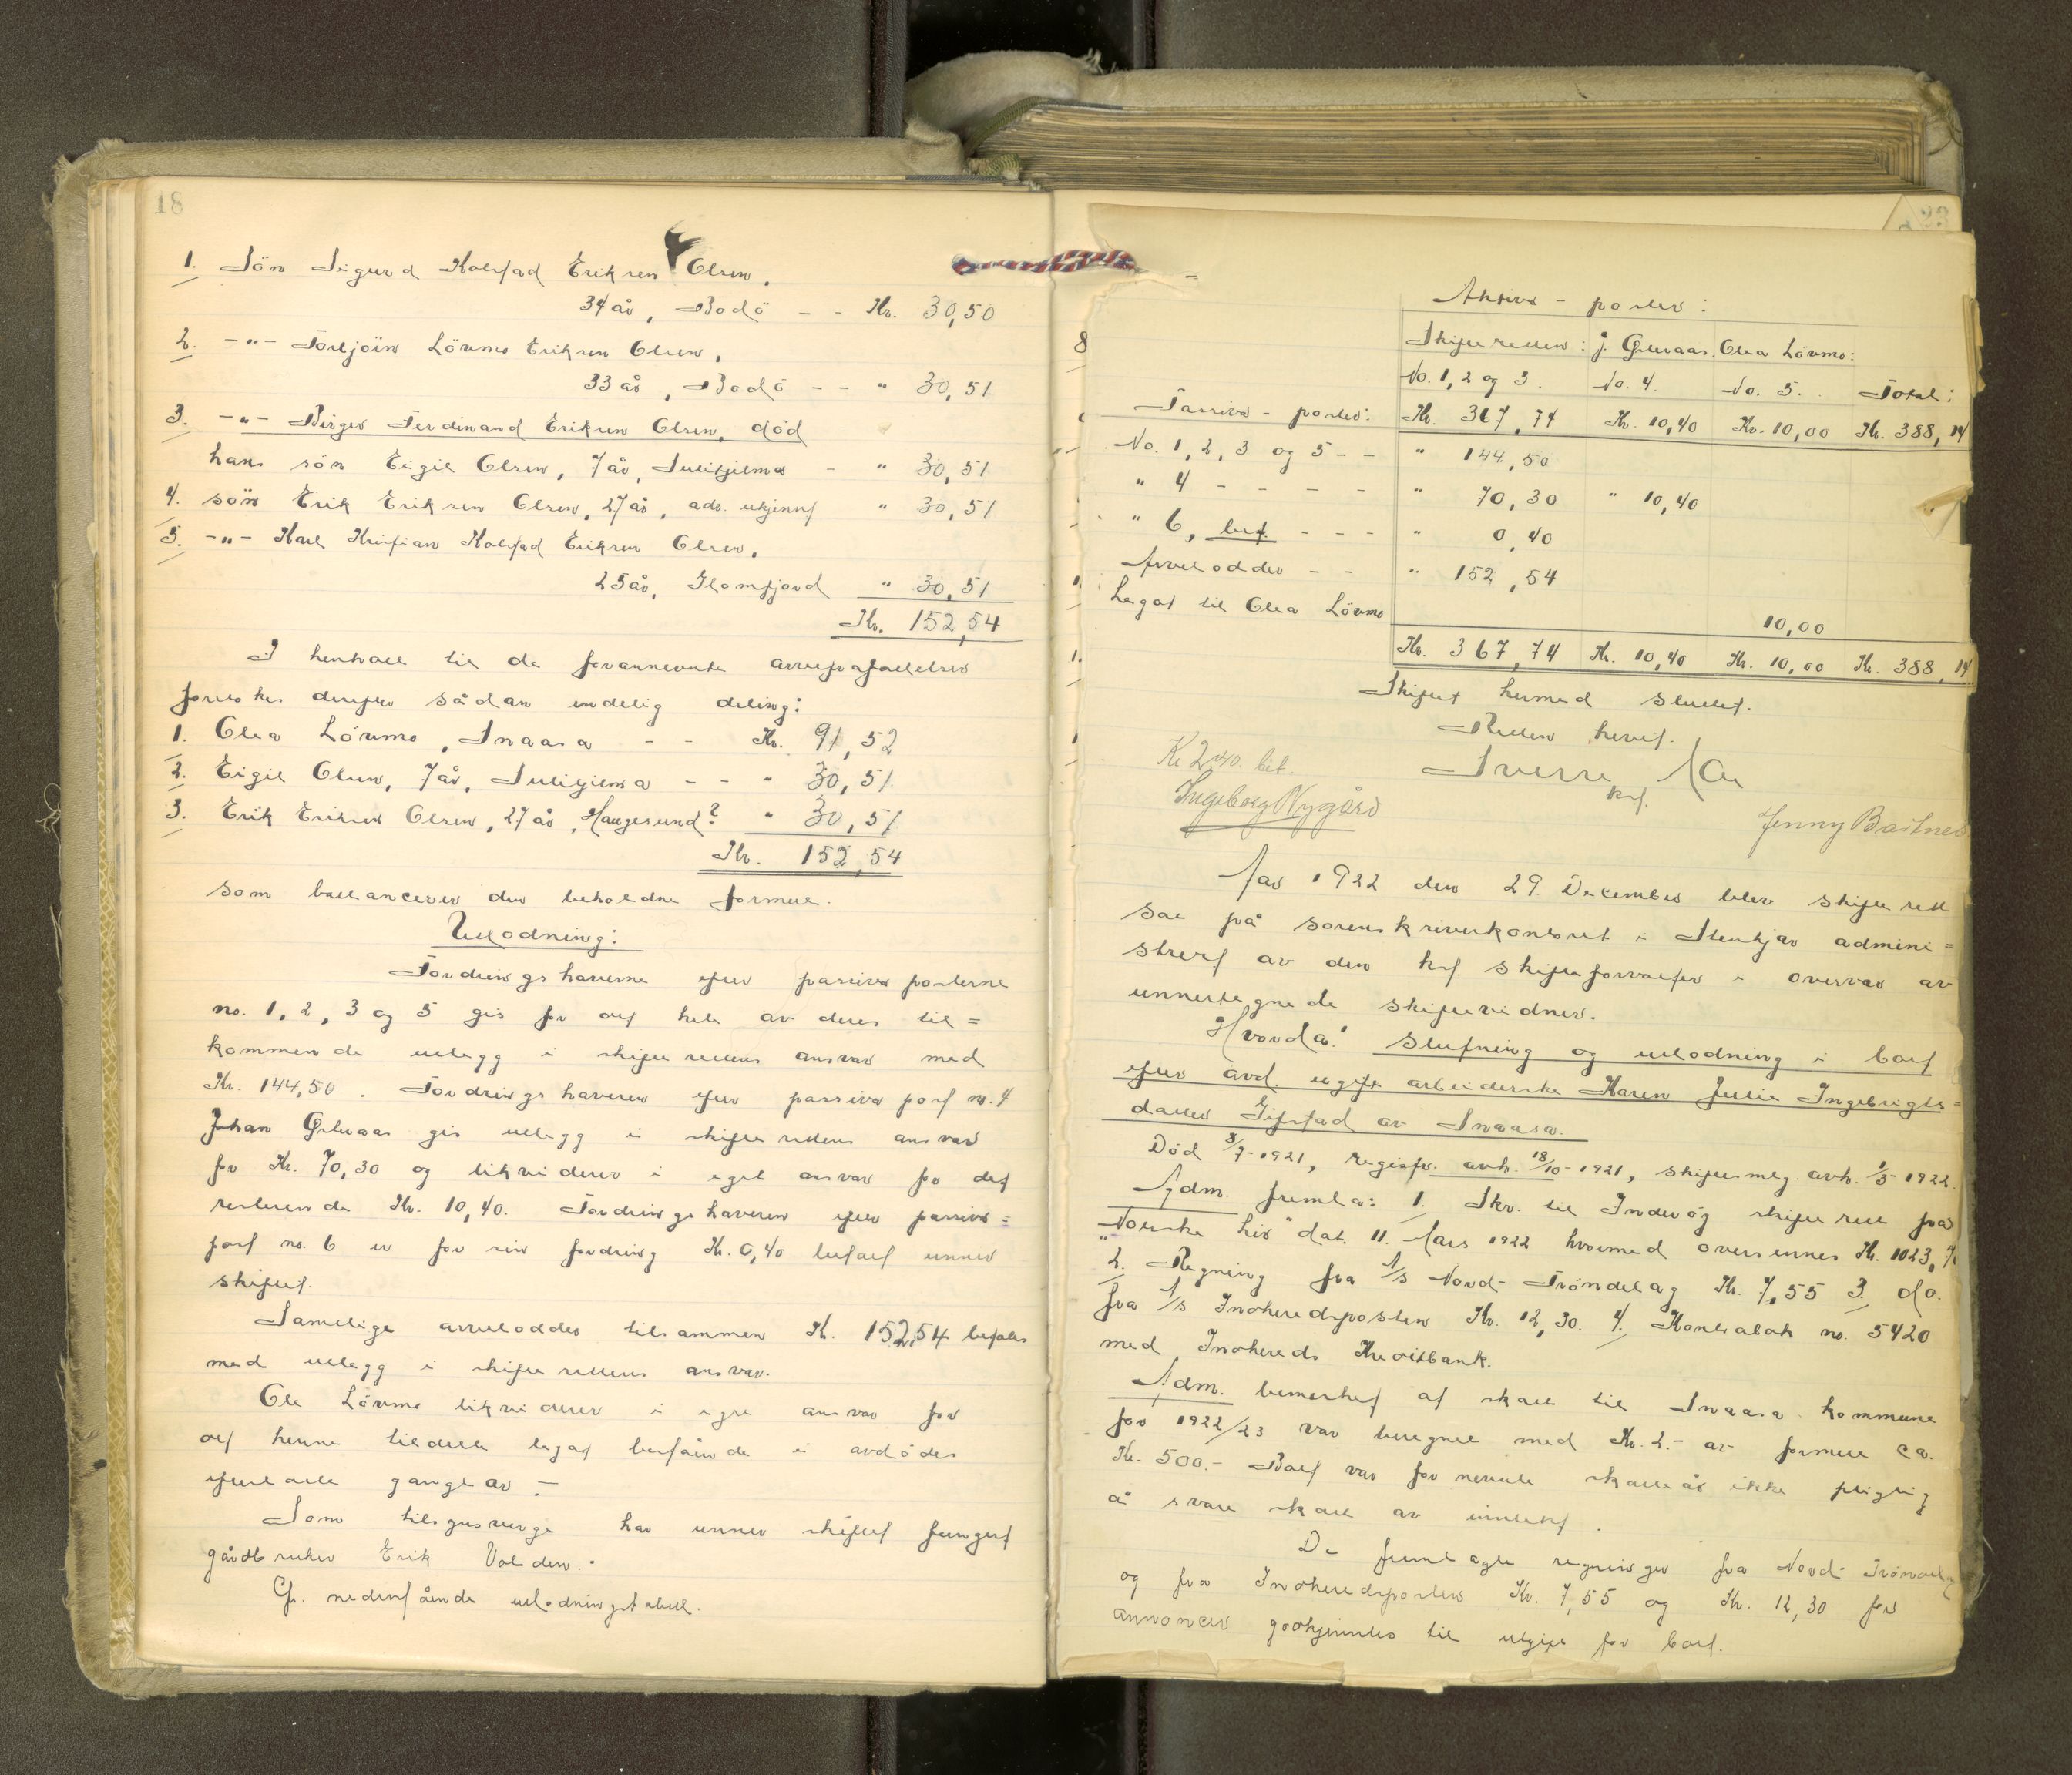 18
1. Sön Sigurd Kolstad Eriksen Olsen,
34 år, Bodö - - Kr. 30,50
2. -"- Torbjörn Lövmo Eriksen Olsen,
33 år, Bodö - - " 30,51
3. -"- Birger Ferdinand Eriksen Olsen, död
hans sön Eigil Olsen, 7 år, Sulitjelma - " 30,51
4. sön Erik Eriksen Olsen, 27 år, adr. ukjent " 30,51
5. -"- Karl Kristian Kolstad Eriksen Olsen,
25 år, Glomfjord " 30,51
Kr. 152,54
I henhold til de forannevnte arveforfallelser
foretokes derefter sådan endelig deling:
1. Olea Lövmo, Snaasa - - Kr. 91,52
2. Eigil Olsen, 7 år, Sulitjelma - - " 30,51
3. Erik Eriksen Olsen, 27 år, Haugesund? " 30,51
Kr. 152,54
som ballancerer den beholdne formue.
Utlodning:
Fordringshaverne efter passivaposterne
no. 1, 2, 3 og 5 gis for det hele av deres til=
kommende utlegg i skifterettens ansvar med
Kr. 144,50. Fordringshaveren efter passiva post no. 4
Johan Gulvaas gis utlegg i skifterettens ansvar
for Kr. 70,30 og likviderer i eget ansvar for det
resterende Kr. 10,40. Fordringshaveren efter passiva=
post no. 6 er for sin fordring Kr. 0,40 betalt under
skiftet.
Samtlige arvelodder tilsammen Kr. 152,54 befales
med utlegg i skifterettens ansvar.
Olea Lövmo likviderer i egne ansvar for
det henne tildelte legat bestående i avdödes
efterlatte gangklær.-
Som tilsynsverge har under skiftet fungert
gårdbruker Erik Valden.-
Cfr. nedenstående utlodningstabell.
Aktiva - poster:
Skifteretten: J. Gulvaas. Olea Lövmo:
No. 1, 2 og 3. No. 4. No. 5. Total:
Passiva - poster: Kr. 367,74 Kr. 10,40 Kr. 10,00 Kr. 388,14
No. 1, 2, 3 og 5 - - " 144,50
" 4 - - - - " 70,30 " 10,40
" 6, bet. - - - " 0,40
Arvelodder - - " 152,54
Legat til Olea Lövmo 10,00
Kr. 367,74 Kr. 10,40 Kr. 10,00 Kr. 388,14
Skiftet hermed sluttet.
Retten hevet.
Kr 2,40 bet. Sverre
Kst.
Ingeborg Nygård
Jenny
Aar 1922 den 29. December blev skifterett
sat på sorenskriverkontoret i Stenkjær admini=
strert av den kst. skifteforvalter i overvær av
undertegnede skiftevidner.
Hvorda: Slutning og utlodning i boet
efter avd. ugift arbeiderske Karen Julie Ingebrigts=
datter Gifstad av Snaasa.
Död 8/7-1921, registr. avh. 18/10-1921, skiftesml. avh. 1/5-1922.
Adm. fremla: 1. Skr. til Inderöy skifterett fra
"Norske Liv" dat. 11. Mars 1922 hvormed oversendes Kr. 1023,
2. Regning fra A/S Nord-Tröndelag Kr. 7,55 3. do.
fra A/S Indheredsposten Kr. 12,30. 4. Kontrabok no. 5420
med Inhereds Kreditbank.
Adm. bemerket at skatt til Snaasa kommune
for 1922/23 var beregnet med Kr. 2.- av formue ca.
Kr. 500.- Boet var for nevnte skatteår ikke pligtig
å svare skatt av inntekt.
De fremlagte regninger fra Nord Tröndelag
og fra Indheredsposten Kr. 7,55 og Kr. 12,30 for
annoncer godkjendtes til utgift for boet.